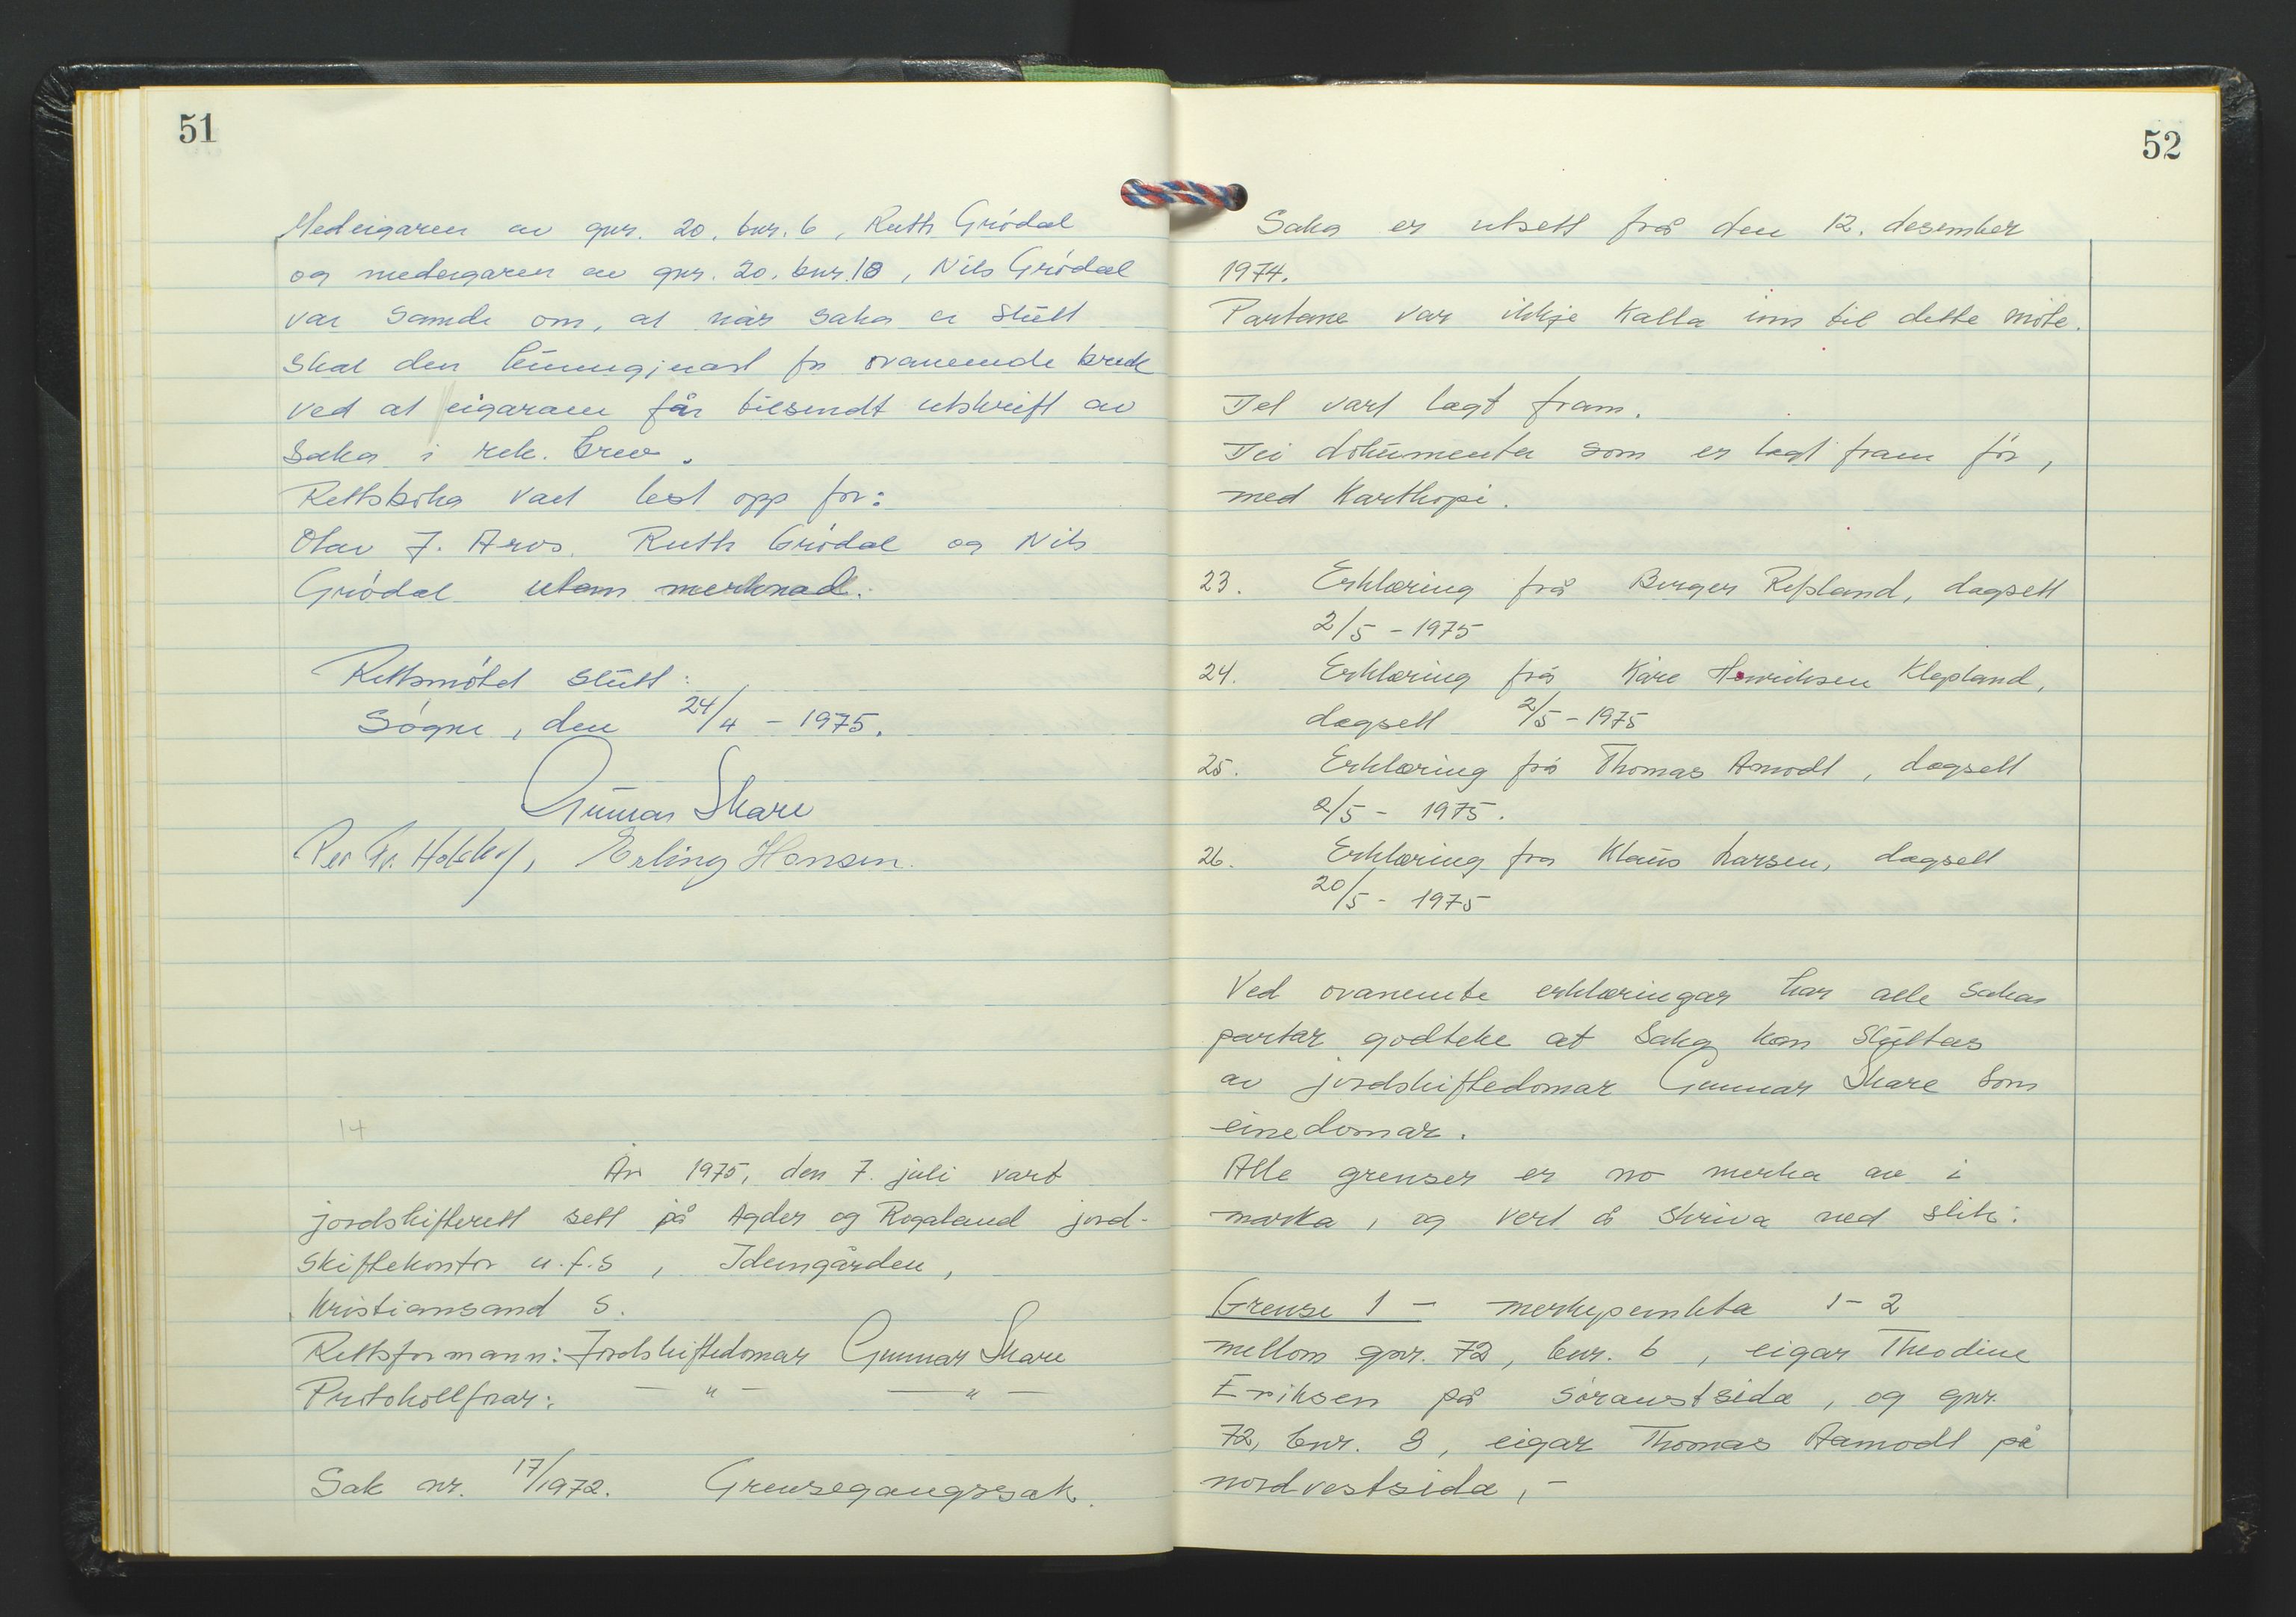 51
Medeigaren av gnr. 20, bnr. 6, Ruth Grödal
og medeigaren av gnr. 20, bnr. 18, Nils Grödal
var samde om, at når saka er slutt
skal den kunngjerast for ovanemnde bruk
ved at eigarane får tilsendt utskrift av
saka i rek. brev.
Rettsboka vart lest opp for:
Olav J. Aros, Ruth Grödal og Nils
Grödal utan merknad.
Rettsmötet slutt:
Sögne, den 24/4 - 1975.
Gunnar Skare
Per Gr. Erling Hansen.
14
År 1975, den 7. juli vart
jordskifterett sett på Agder og Rogaland jord-
skiftekontor u.f.s, Idungården,
Kristiansand S.
Rettsformann: Jordskiftedomar Gunnar Skare
Protokollförar: — " — — " —
Sak nr. 17/1972. Grensegangssak.
52
Saka er utsett frå den 12. desember
1974.
Partane var ikkje kalla inn til dette möte.
Det vart lagt fram.
Dei dokumenta som er lagt fram för,
med kartkopi.
23. Erklæring frå Birger Repland, dagsett
2/5 - 1975
24. Erklæring frå Kåre Henriksen Klepland,
dagsett 2/5 - 1975
25. Erklæring frå Thomas Amodt, dagsett
2/5 - 1975.
26. Erklæring fra Klaus Larsen, dagsett
20/5 - 1975
Ved ovanemte erklæringar har alle sakas
partar godteke at saka kan sluttas
av jordskiftedomar Gunnar Skare som
einedomar.
Alle grenser er no merka av i
marka, og vert å skriva ned slik:
Grense 1 — merkepunkta 1 - 2
mellom gnr. 72, bnr. 6, eigar Theodine
Eriksen på söraustsida, og gnr.
72, bnr. 8, eigar Thomas Aamodt på
nordvestsida, -